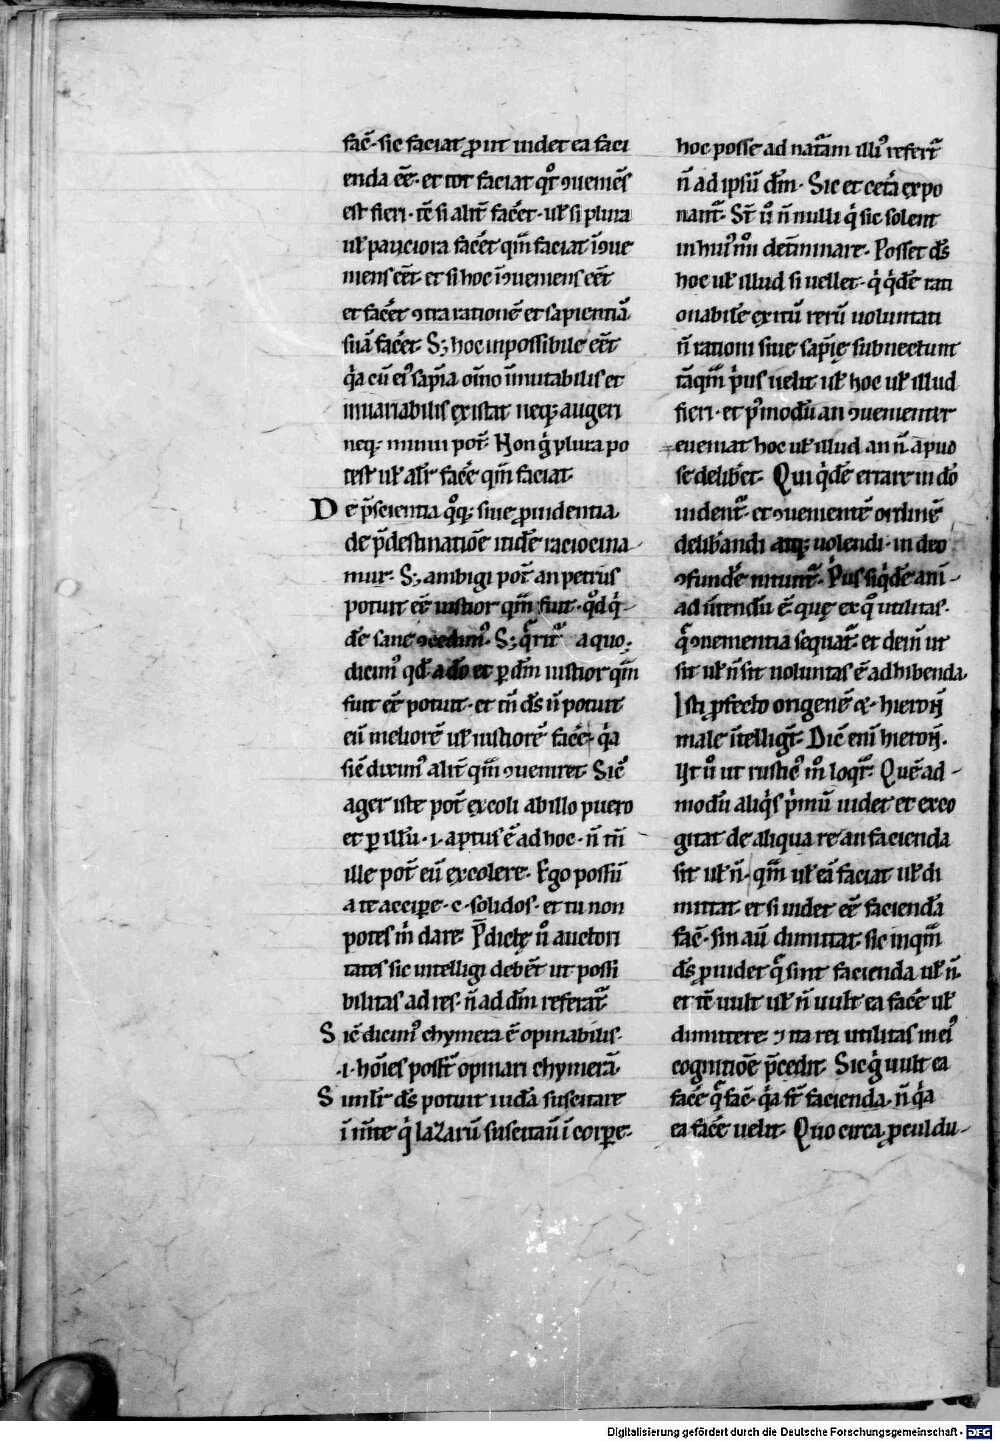 facē· sic faciat ꝓut uidet ea faci
enda eē̄· et tot faciat qͦt ꝯueniēs
est fieri· tē si alit̄ fac̄et· ul̄ si plura
ul̄ pauciora fac̄et qm̄ faciat īꝯue
niens eēt· et si hoc īꝯueniens eēt
et fac̄et ꝯtra rationē et sapientiā
suā fac̄et· Sꝫ hoc inpossibile eēt
q̇a cū eiꝰ sap̄ia om̄o īmutabilis et
inuariabilis existat neqꝫ augeri
neqꝫ minui pot̄· Non g̊ plura po
test ul̄ alit̄ fac̄e qm̄ faciat·
De p̄scientia qͦqꝫ siue ꝓuidentia·
de p̄destinatiōe itidē raciocina
mur· Sꝫ ambigi pot̄ an petrus
potuit eē iustior qm̄ fuit· qͦd q̇
dē sane ꝯcedimꝰ· Sꝫ q̄rit᷑ a quo·
dicimꝰ qd̄ a dō et ꝑ dm̄ iustior qm̄
fuit eē potuit· et tn̄ ds̄ n̄ potuit
eū meliorē ul̄ iustiorē fac̄e· q̇a
sic̄ diximꝰ alit̄ qm̄ ꝯueniret· Sic̄
ager iste pot̄ excoli ab illo puero
et ꝑ illū· i· aptus ē ad hoc· n̄ tn̄
ille pot̄ eū excolere· Ego possū
a te accipe· c· solidos· et tu non
potes m̄ dare· P̄dictę u̇ auctori
tates sic intelligi debēt ut possi
bilitas ad res· n̄ ad dm̄ referat᷑
Sic̄ dicimꝰ chymera ē opinabilis·
·i· hōies posst̄ opinari chymerā·
Simılit̄ ds̄ potuit iudā suscitare
ī m̄te q̇ lazarū suscitau̇ ī corpe·
hoc posse ad nat᷑am illiꝰ refert᷑
n̄ ad ipsū dm̄· Sic et cet̄a expo
nant᷑· St̄ u̇ n̄ nulli q̇ sic solent
in huiꝰmͦi det̄minare· Posset ds̄
hoc ul̄ illud si uellet· q̇ q̇dē rati
onabilē exitū rerū uoluntati
n̄ rationi siue sap̄ię subnectunt
tāqm̄ ṗus uelit ul̄ hoc ul̄ illud
fieri· et pꝰmodū an ꝯuenienter
eueniat hoc ul̄ illud an n̄ apuo
se delib̄et· Qui q̇dē errare in dō
uident᷑· et ꝯuenientē ordinē
delib̄andi atqꝫ uolendi· in deo
ꝯfundē nitunt᷑· Ṗus siq̇dē ani
aduertendū ē quę ex qͦ utilitas·
q̄ ꝯuenientia sequat᷑· et dein̄ ut
sit ul̄ n̄ sit uoluntas ē adhibenda·
Isti ꝓfecto origenē ⁊· hieron̄
male intelligt̄· Dic̄ eni hieron̄·
Ut u̇ ut rusticꝰ mͦ loqr̄· Quēad
modū aliq̇s ṗmū uidet et exco
gitat de aliqua re an facienda
sit ul̄ n̄· qm̄ ul̄ eā faciat ul̄ di
mittat· et si uidet eē faciendā
facē· sin au᷑ dimittat· sic inqm̄
ds̄ ꝓuidet q̄ sint facienda ul̄ n̄·
et tē uult ul̄ n̄ uult ea fac̄e ul̄
dimittere· ⁊ ita rei utilitas in eiꝰ
cognitiōe p̄cedit· Sic g̊ uult ea
fac̄e q̄ facē· q̇a st̄ facienda· n̄ q̇a
ea fac̄e uelit· Quo circa ꝓculdu-
Digitalisierung gefördert durch die Deutsche Forschungsgemeinschaft - DFG